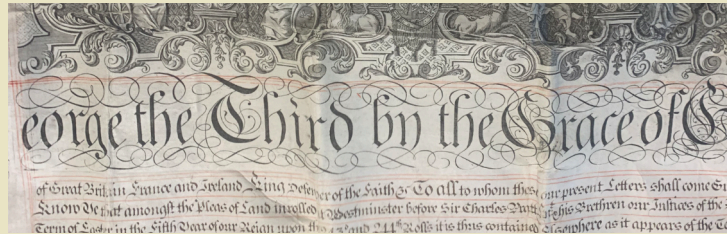 eorge the Third by the Grace of G
of Great Britain France and Ireland King Defender of the Faith &c To all to whom these our present Letters shall come Gr
Know Ye that amongst the Pleas of Land inrolled at Westminster before Sir Charles his Brethren our Justices of the
Term of Easter in the Fifth Year of our Reign upon the and 244th Rolls it is thus contained as it appears of the T